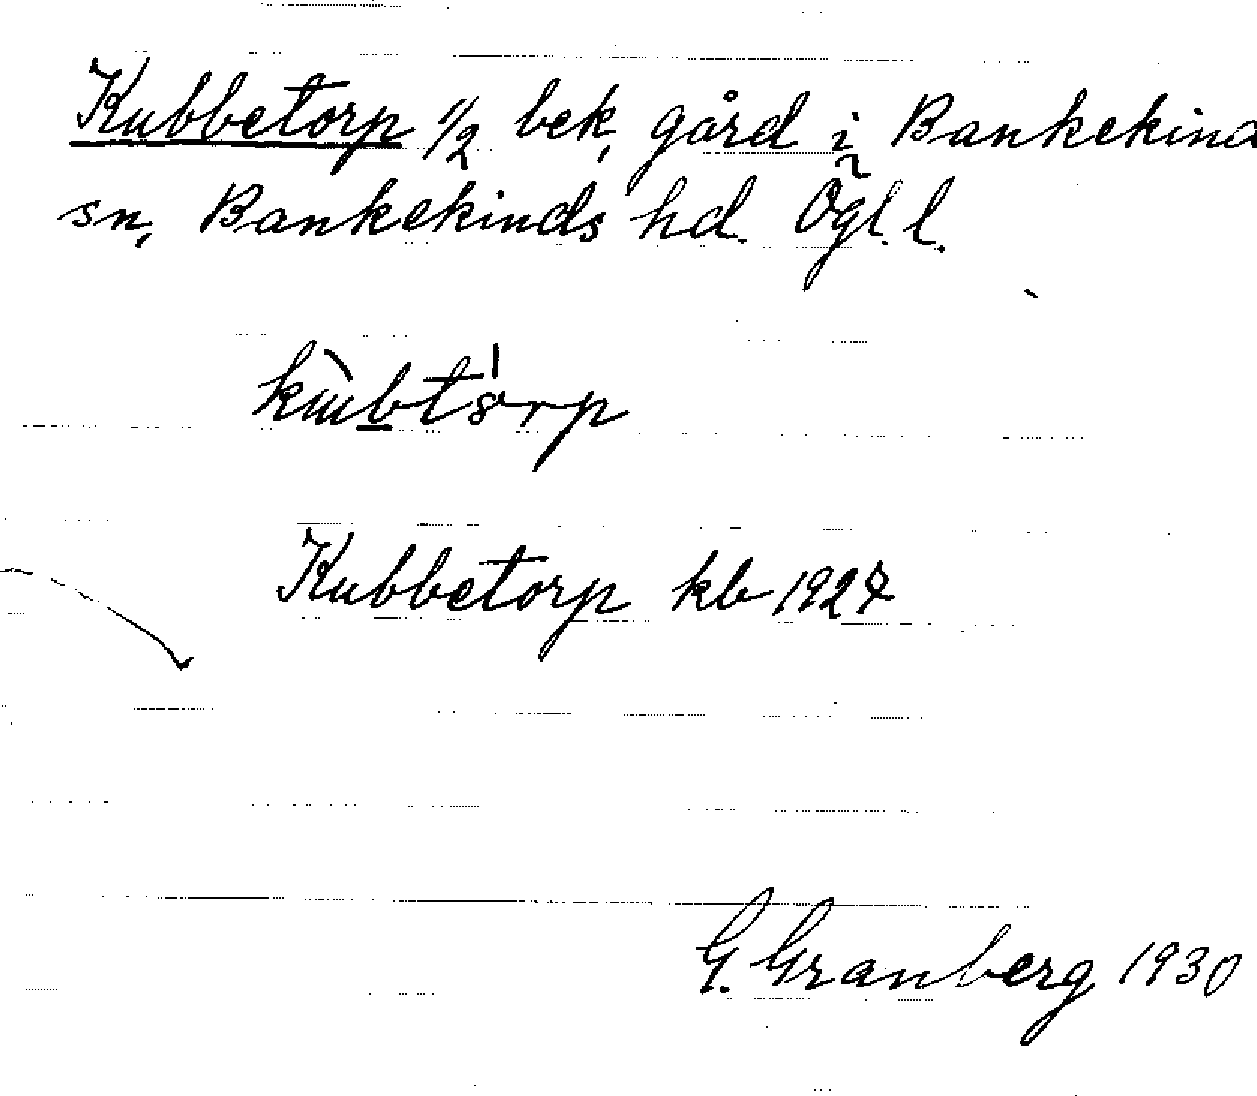 Kubbetorp 1/2 bek, gård i Bankekind
sn, Bankekinds hd. Ögl. l.
Kubbetorp kb 1927
G. Granberg 1930